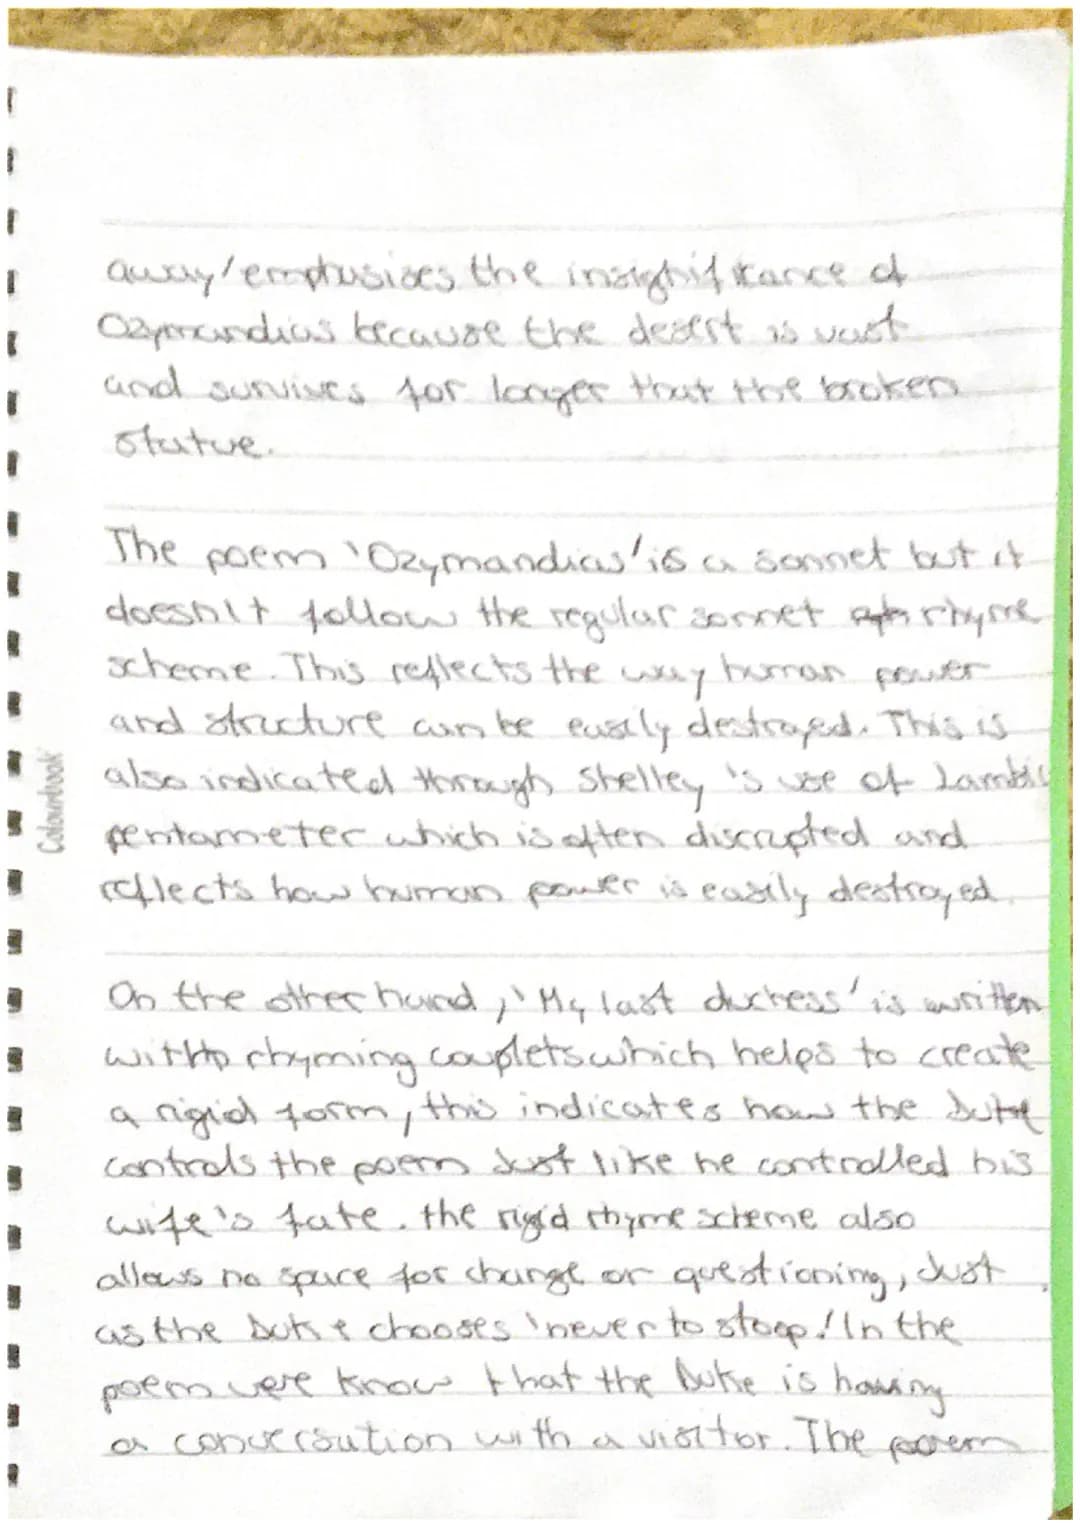 away' emphasises the insighificance of
Ozymandias because the desert is vast
and survives for longer that the broken
statue.
The poem 'Ozymandias' is a sonnet but it
doesn't follow the regular sonnet rhyme
scheme. This reflects the way human power
and structure can be easily destroyed. This is
also indicated through Shelley's use of Iambic
pentameter which is often discrupted and
reflects how human power is easily destroyed.
On the other hand, 'My last duchess' is written
with rhyming couplets which helps to create
a rigid form, this indicates how the Duke
controls the poem Just like he controlled his
wife's fate. the rigid rhyme scheme also
allows no space for change or questioning, Just
as the Duke chooses 'never to stoop.' In the
poem we know that the Duke is having
a conversation with a visitor. The poem
Colourbook